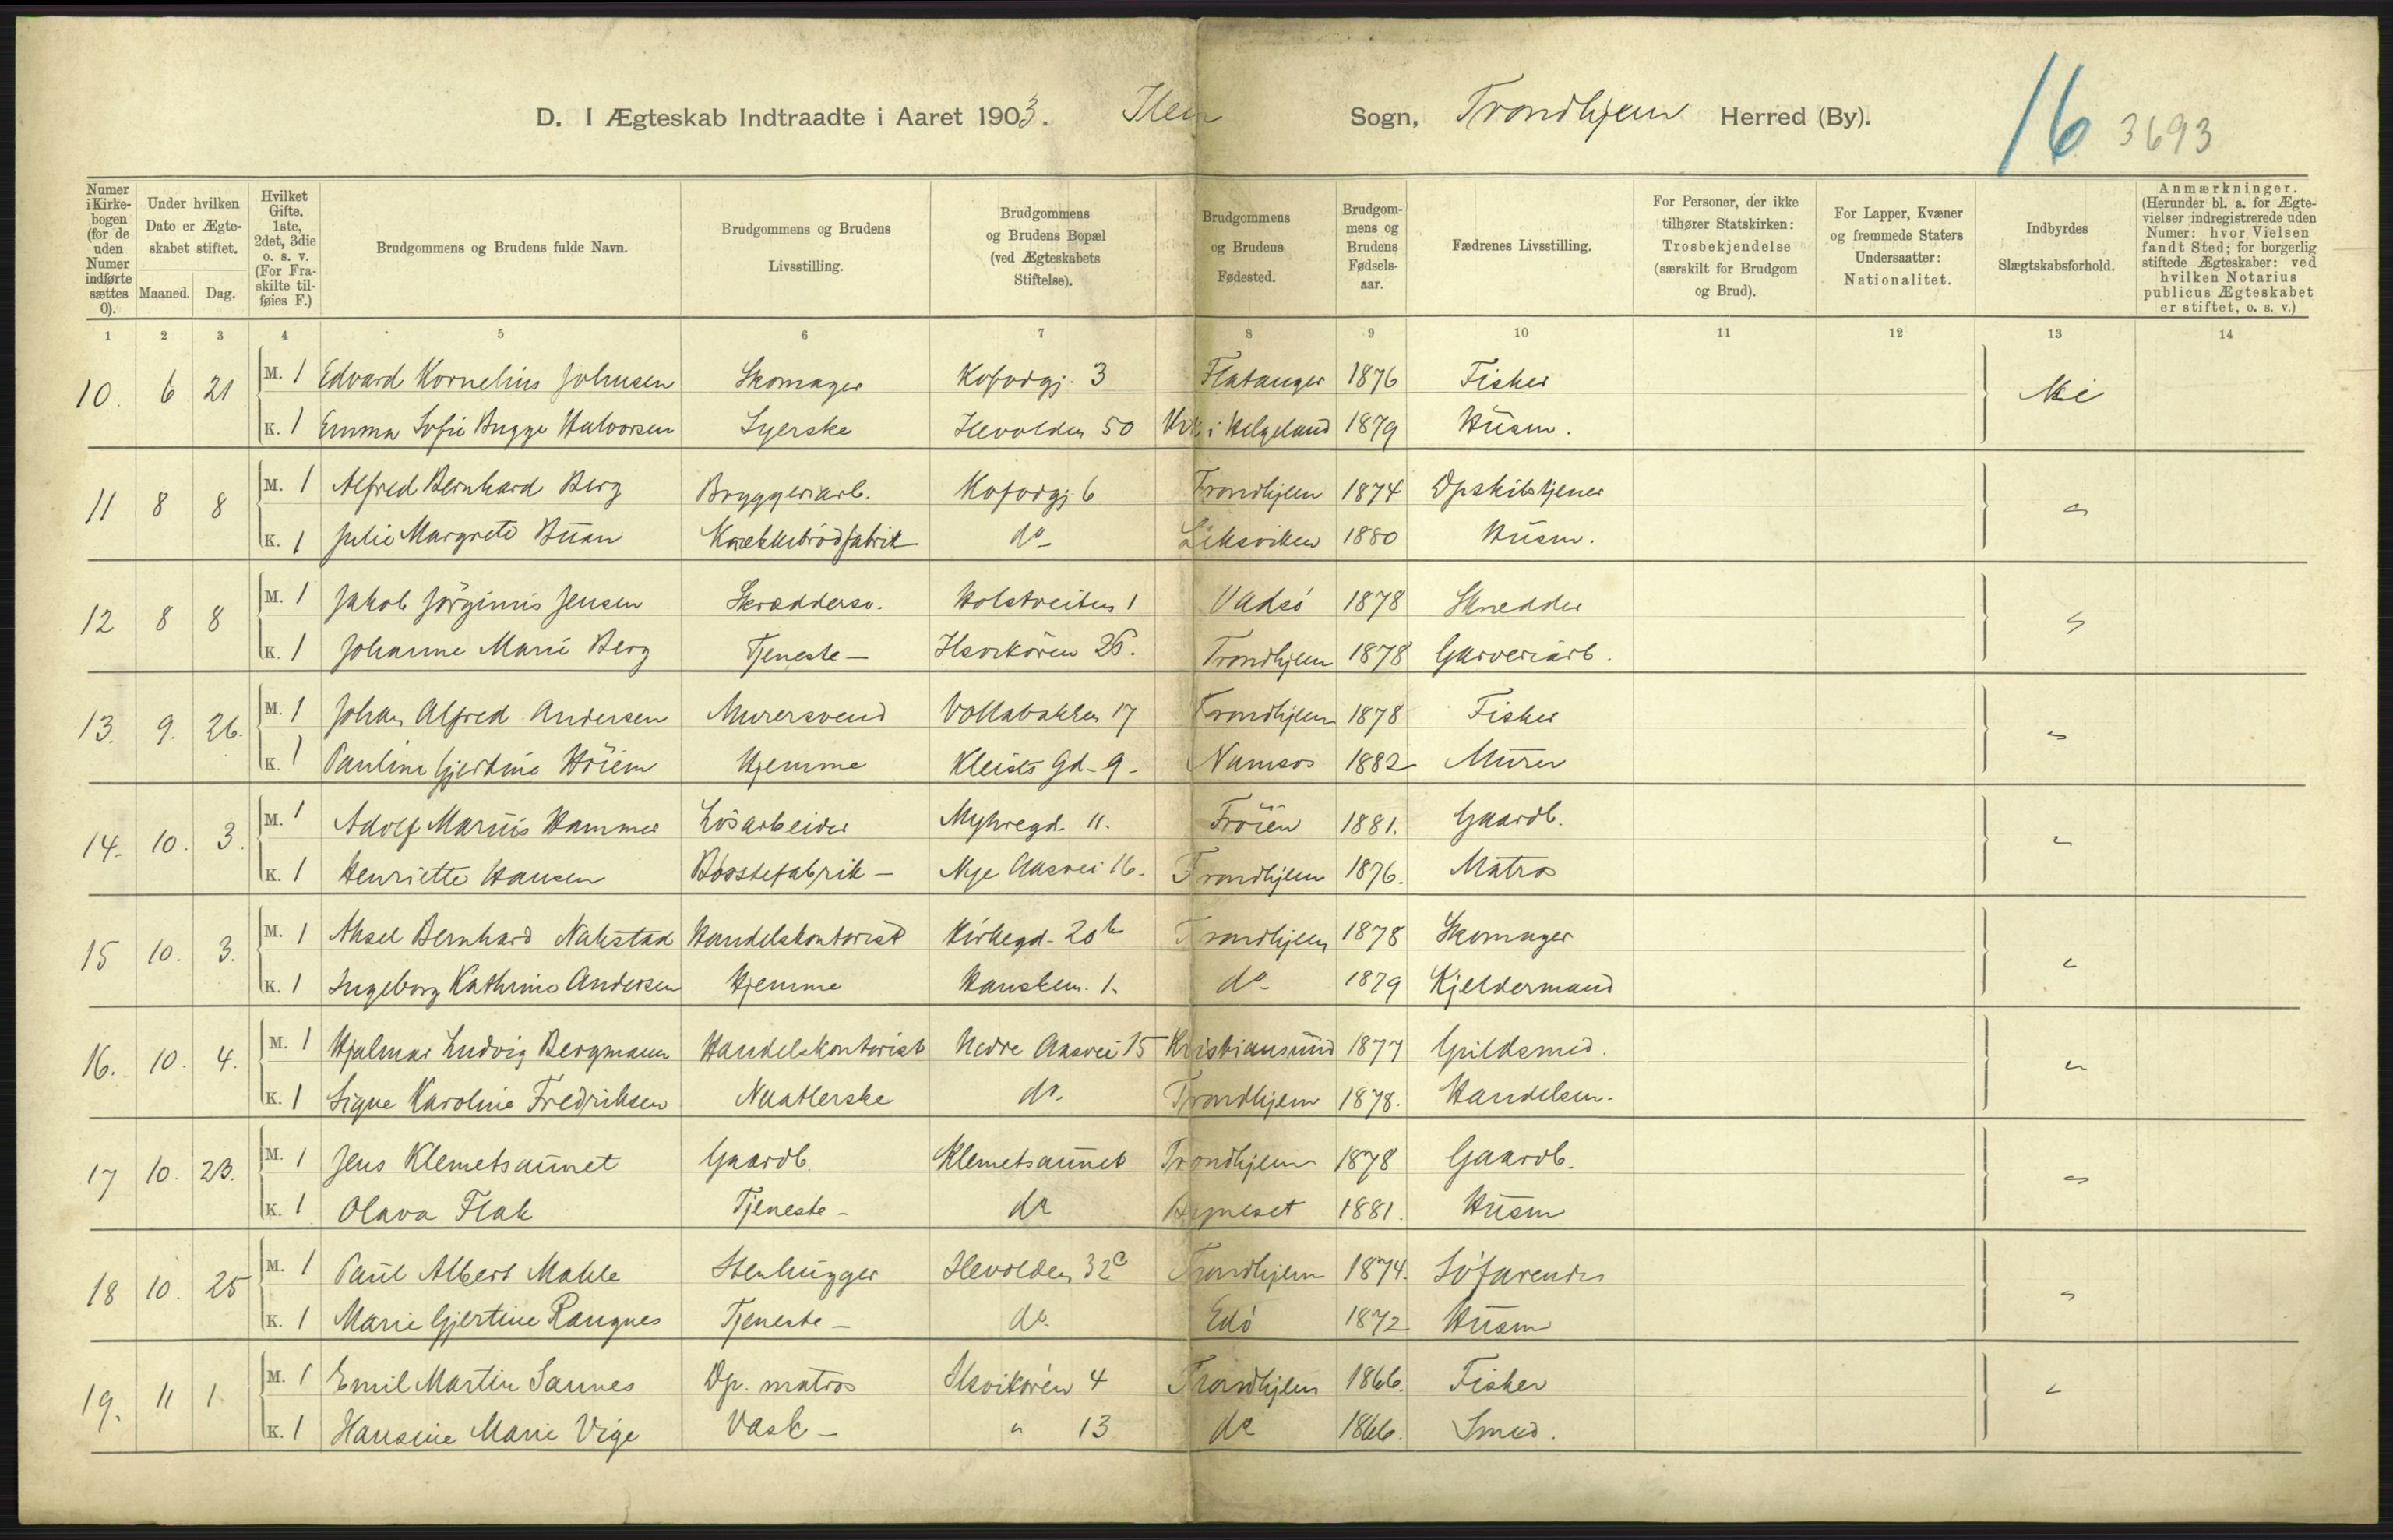 D. I Ægteskab Indtraadte i Aaret 1903. Ilen Sogn, Trondhjem Herred (By). 16 3693
Numer i Kirkebogen (for de uden Numer indførte sættes 0). Under hvilken Dato er Ægteskabet stiftet. Maaned. Dag. Hvilket Gifte. 1ste, 2det, 3die o. s. v. (For Fraskilte tilføies F.) Brudgommens og Brudens fulde Navn. Brudgommens og Brudens Livsstilling. Brudgommens og Brudens Bopæl (ved Ægteskabets Stiftelse). Brudgommens og Brudens Fødested. Brudgommens og Brudens Fødselsaar. Fædrenes Livsstilling. For Personer, der ikke tilhører Statskirken: Trosbekjendelse (særskilt for Brudgom og Brud). For Lapper, Kvæner og fremmede Staters Undersaatter: Nationalitet. Indbyrdes Slægtskabsforhold. Anmærkninger. (Herunder bl. a. for Ægtevielser indregistrerede uden Numer: hvor Vielsen fandt Sted; for borgerlig stiftede Ægteskaber: ved hvilken Notarius publicus Ægteskabet er stiftet, o. s. v.)
1 2 3 4 5 6 7 8 9 10 11 12 13 14
10. 6 21 M. 1 Edvard Kornelius Johnsen Skomager Kofodgj. 3 Flatanger 1876 Fisker Nei
K. 1 Emma Sofie Bugge Halvorsen Syerske Ilevolden 50 i Helgeland 1879 Husm.
11 8 8 M. 1 Alfred Bernhard Berg Bryggeriarb. Kofodgj. 6 Trondhjem 1874 Opskibstjener "
K. 1 Julie Margrete Buan Knækkebrødfabrik do Leksviken 1880 Husm.
12 8 8 M. 1 Jakob Jørginus Jensen Skræddersv. Holstveiten 1 Vadsö 1878 Skrædder "
K. 1 Johanne Marie Berg Tjeneste - Ilsvikøren 26. Trondhjem 1878 Garveriarb.
13. 9. 26. M. 1 Johan Alfred Andersen Murersvend Vollabakken 17 Trondhjem 1878 Fisker "
K. 1 Pauline Gjertine Höiem Hjemme Kleists Gd. 9 - Namsos 1882 Murer
14. 10. 3. M. 1 Adolf Marius Hammer Lösarbeider Myhregd. 11. Fröien 1881. Gaardb. "
K. 1 Henriette Hansen Børstefabrik - Nye Aasvei 16. Trondhjem 1876. Matros
15 10. 3. M. 1 Aksel Bernhard Nakstad Handelskontorist Kirkegd. 20 b Trondhjem 1878 Skomager "
K. 1 Ingeborg Kathrine Andersen Hjemme Hanskem. 1. do 1879 Kjeldermand
16. 10. 4. M. 1 Hjalmar Ludvig Bergmann Handelskontorist Nedre Aasvei 15 Kristiansund 1877 Guldsmed. "
K. 1 Signe Karoline Fredriksen Naatlerske do. Trondhjem 1878. Handelsm.
17 10. 23. M. 1 Jens Klemetsaunet Gaardb. Klemetsaunet Trondhjem 1878 Gaardb. "
K. 1 Olava Flak Tjeneste - do Byneset 1881. Husm
18 10. 25 M. 1 Paul Albert Mahle Stenhugger Ilevolden 32 c Trondhjem 1874. Söfarende "
K. 1 Marie Gjertine Rangnes Tjeneste - do. Edö 1872 Husm
19. 11 1. M. 1 Emil Martin Sannes Dp. matros Ilsvikøren 4 Trondhjem 1866. Fisker "
K. 1 Hansine Marie Vige Vask - " 13 do 1866. Smed.